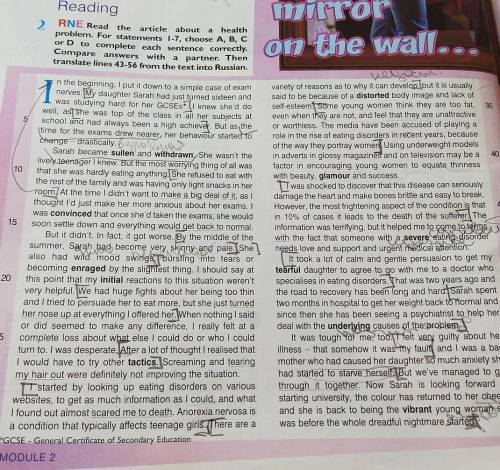 Reading
2 RNE Read the article about a health
problem. For statements 1-7, choose A, B, C
or D to complete each sentence correctly.
Compare answers with a partner. Then
translate lines 43-56 from the text into Russian.
mirror
on the wall...
In the beginning, I put it down to a simple case of exam
nerves. My daughter Sarah had just turned sixteen and
was studying hard for her GCSEs*. I knew she'd do
well, as she was top of the class in all her subjects at
5 school and had always been a high achiever. But as the
time for the exams drew nearer, her behaviour started to
change – drastically.
Sarah became sullen and withdrawn. She wasn't the
lively teenager I knew. But the most worrying thing of all was
10 that she was hardly eating anything. She refused to eat with
the rest of the family and was having only light snacks in her
room. At the time I didn't want to make a big deal of it, as I
thought I'd just make her more anxious about her exams. I
was convinced that once she'd taken the exams, she would
15 soon settle down and everything would get back to normal.
But it didn't. In fact, it got worse. By the middle of the
summer, Sarah had become very skinny and pale. She
also had wild mood swings, bursting into tears or
becoming enraged by the slightest thing. I should say at
20 this point that my initial reactions to this situation weren't
very helpful. We had huge fights about her being too thin
and I tried to persuade her to eat more, but she just turned
her nose up at everything I offered her. When nothing I said
or did seemed to make any difference, I really felt at a
5 complete loss about what else I could do or who I could
turn to. I was desperate. After a lot of thought I realised that
I would have to try other tactics. Screaming and tearing
my hair out were definitely not improving the situation.
I started by looking up eating disorders on various
websites, to get as much information as I could, and what
I found out almost scared me to death. Anorexia nervosa is
a condition that typically affects teenage girls. There are a
variety of reasons as to why it can develop, but it is usually
said to be because of a distorted body image and lack of
self-esteem. Some young women think they are too fat, 35
even when they are not, and feel that they are unattractive
or worthless. The media have been accused of playing a
role in the rise of eating disorders in recent years, because
of the way they portray women. Using underweight models
in adverts in glossy magazines and on television may be a 40
factor in encouraging young women to equate thinness
with beauty, glamour and success.
I was shocked to discover that this disease can seriously
damage the heart and make bones brittle and easy to break.
However, the most frightening aspect of the condition is that
in 10% of cases it leads to the death of the sufferer. The
information was terrifying, but it helped me to come to terms
with the fact that someone with a severe eating disorder
needs love and support and urgent medical attention.
It took a lot of calm and gentle persuasion to get my
tearful daughter to agree to go with me to a doctor who
specialises in eating disorders. That was two years ago and
the road to recovery has been long and hard. Sarah spent
two months in hospital to get her weight back to normal and
since then she has been seeing a psychiatrist to help her
deal with the underlying causes of the problem.
It was tough for me, too. I felt very guilty about her
illness – that somehow it was my fault and I was a bad
mother who had caused her daughter so much anxiety sh
had started to starve herself. But we've managed to g
through it together. Now Sarah is looking forward
starting university, the colour has returned to her chee
and she is back to being the vibrant young woman s
was before the whole dreadful nightmare started.
*GCSE - General Certificate of Secondary Education
MODULE 2